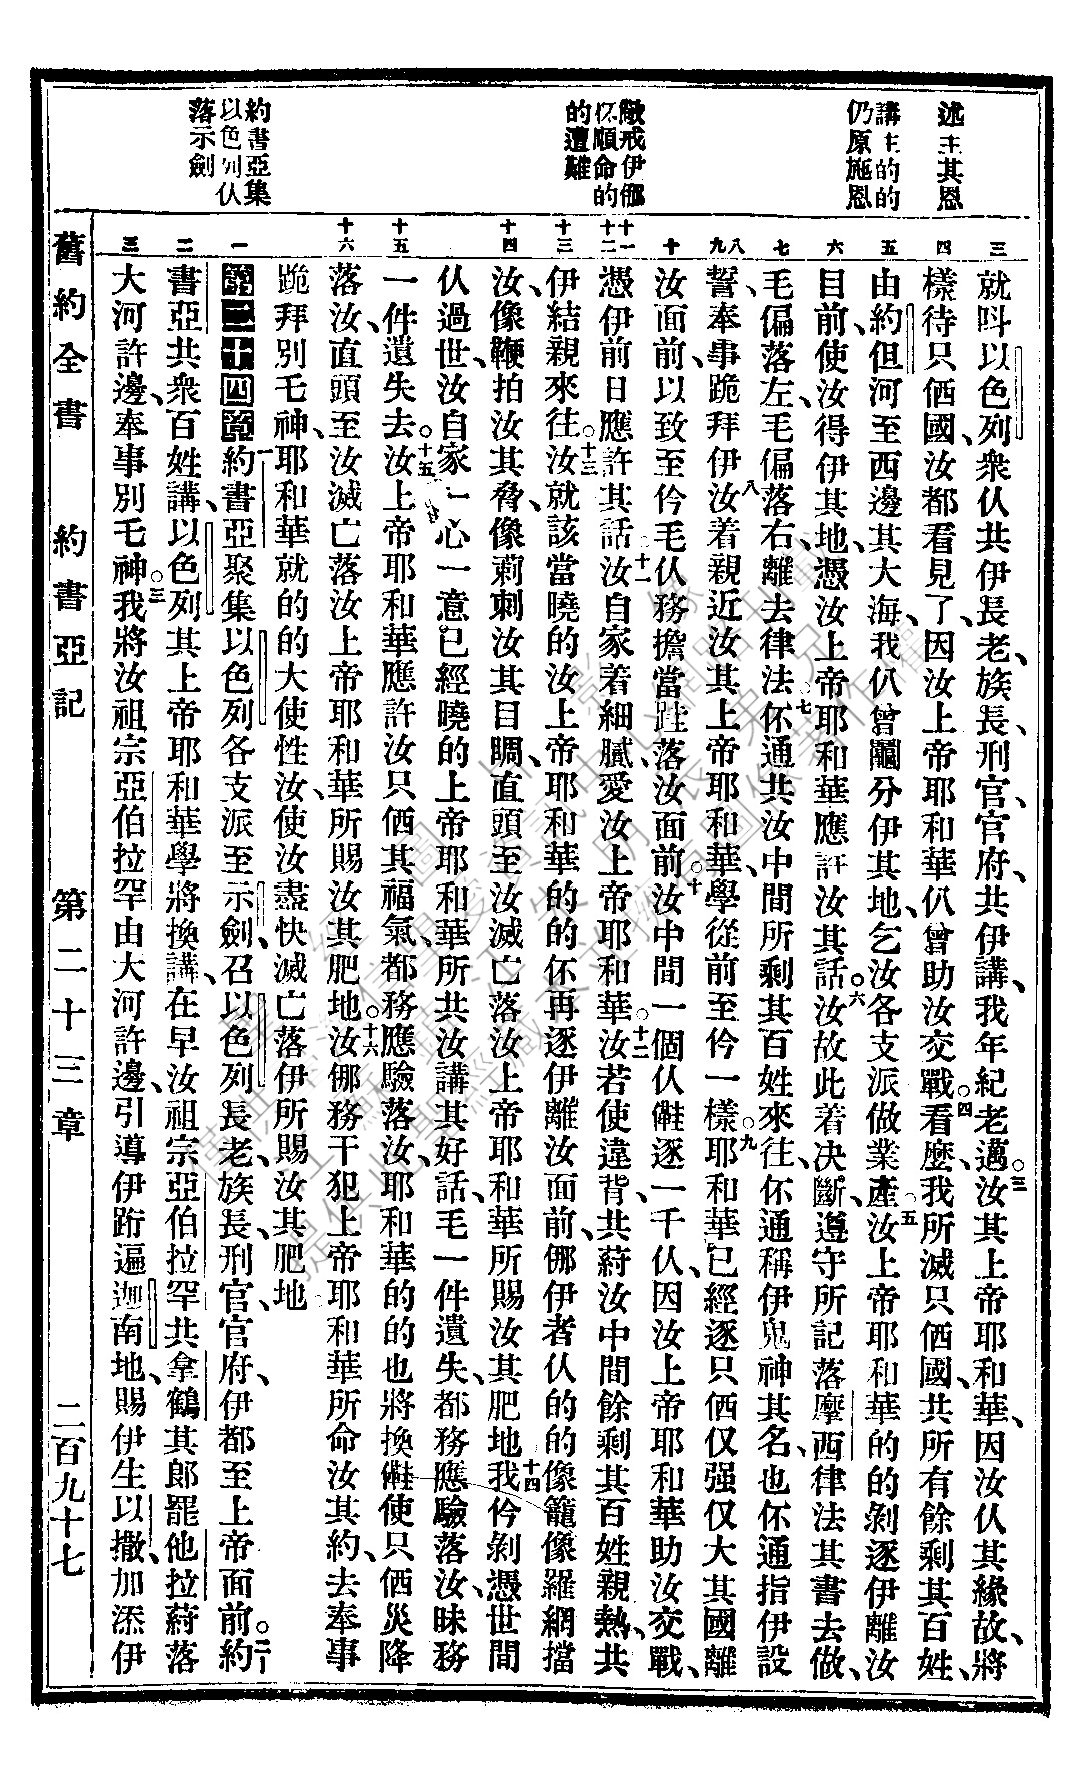 述主其恩
講主的的
仍原施恩
儆戒伊㑚
伓順命的
的遭難
約書亞集
以色列仈
落示劍
三
四
五
六
七
八
九
十
十一
十二
十三
十四
十五
十六
一
二
三
就呌以色列衆仈共伊長老、族長、刑官、官府、共伊講、我年紀老邁。三汝其上帝耶和華、因汝仈其緣故、將
樣待只㑚國、汝都看見了、因汝上帝耶和華仈曾助汝交戰。四看麽、我所滅只㑚國、共所有餘剩其百姓、
由約但河至西邊其大海、我仈曾鬮分伊其地、乞汝各支派做業產。五汝上帝耶和華的的剝逐伊離汝
目前、使汝得伊其地、憑汝上帝耶和華應許汝其話。六汝故此着決斷、遵守所記落摩西律法其書去做、
毛偏落左、毛偏落右、離去律法。七伓通共汝中間所剩其百姓來往、伓通稱伊鬼神其名、也伓通指伊設
誓、奉事跪拜伊。八汝着親近汝其上帝耶和華、學從前至仱一樣。九耶和華已經逐只㑚仅强仅大其國離
汝面前、以致至仱毛仈務擔當跬落汝面前。十汝中間一個仈㑢逐一千仈、因汝上帝耶和華助汝交戰、
憑伊前日應許其話。十一汝自家着細膩、愛汝上帝耶和華。十二汝若使違背、共蒔汝中間餘剩其百姓親熱、共
伊結親來往。十三汝就該當曉的汝上帝耶和華的的伓再逐伊離汝面前、㑚伊者仈的的像籠像羅網擋
汝、像鞭拍汝其脅、像莿刺汝其目睭、直頭至汝滅亡落汝上帝耶和華所賜汝其肥地。十四我仱剝憑世間
仈過世、汝自家一心一意已經曉的上帝耶和華所共汝講其好話、毛一件遺失、都務應驗落汝、昧務
一件遺失去。十五汝上帝耶和華應許汝只㑚其福氣、都務應驗落汝、耶和華的的也將換㑢使只㑚災降
落汝、直頭至汝滅亡落汝上帝耶和華所賜汝其肥地。十六汝㑚務干犯上帝耶和華所命汝其約、去奉事
跪拜別乇神、耶和華就的的大使性汝、使汝盡快滅亡落伊所賜汝其肥地
第二十四章 一約書亞聚集以色列各支派至示劍、召以色列長老、族長、刑官、官府、伊都至上帝面前。二約
書亞共衆百姓講、以色列其上帝耶和華學將換講、在早汝祖宗亞伯拉罕共拿鶴其郎罷他拉蒔落
大河許邊、奉事別乇神。三我將汝祖宗亞伯拉罕由大河許邊、引導伊跨遍迦南地、賜伊生以撒、加添伊
舊約全書 約書亞記 第二十三章 二百九十七